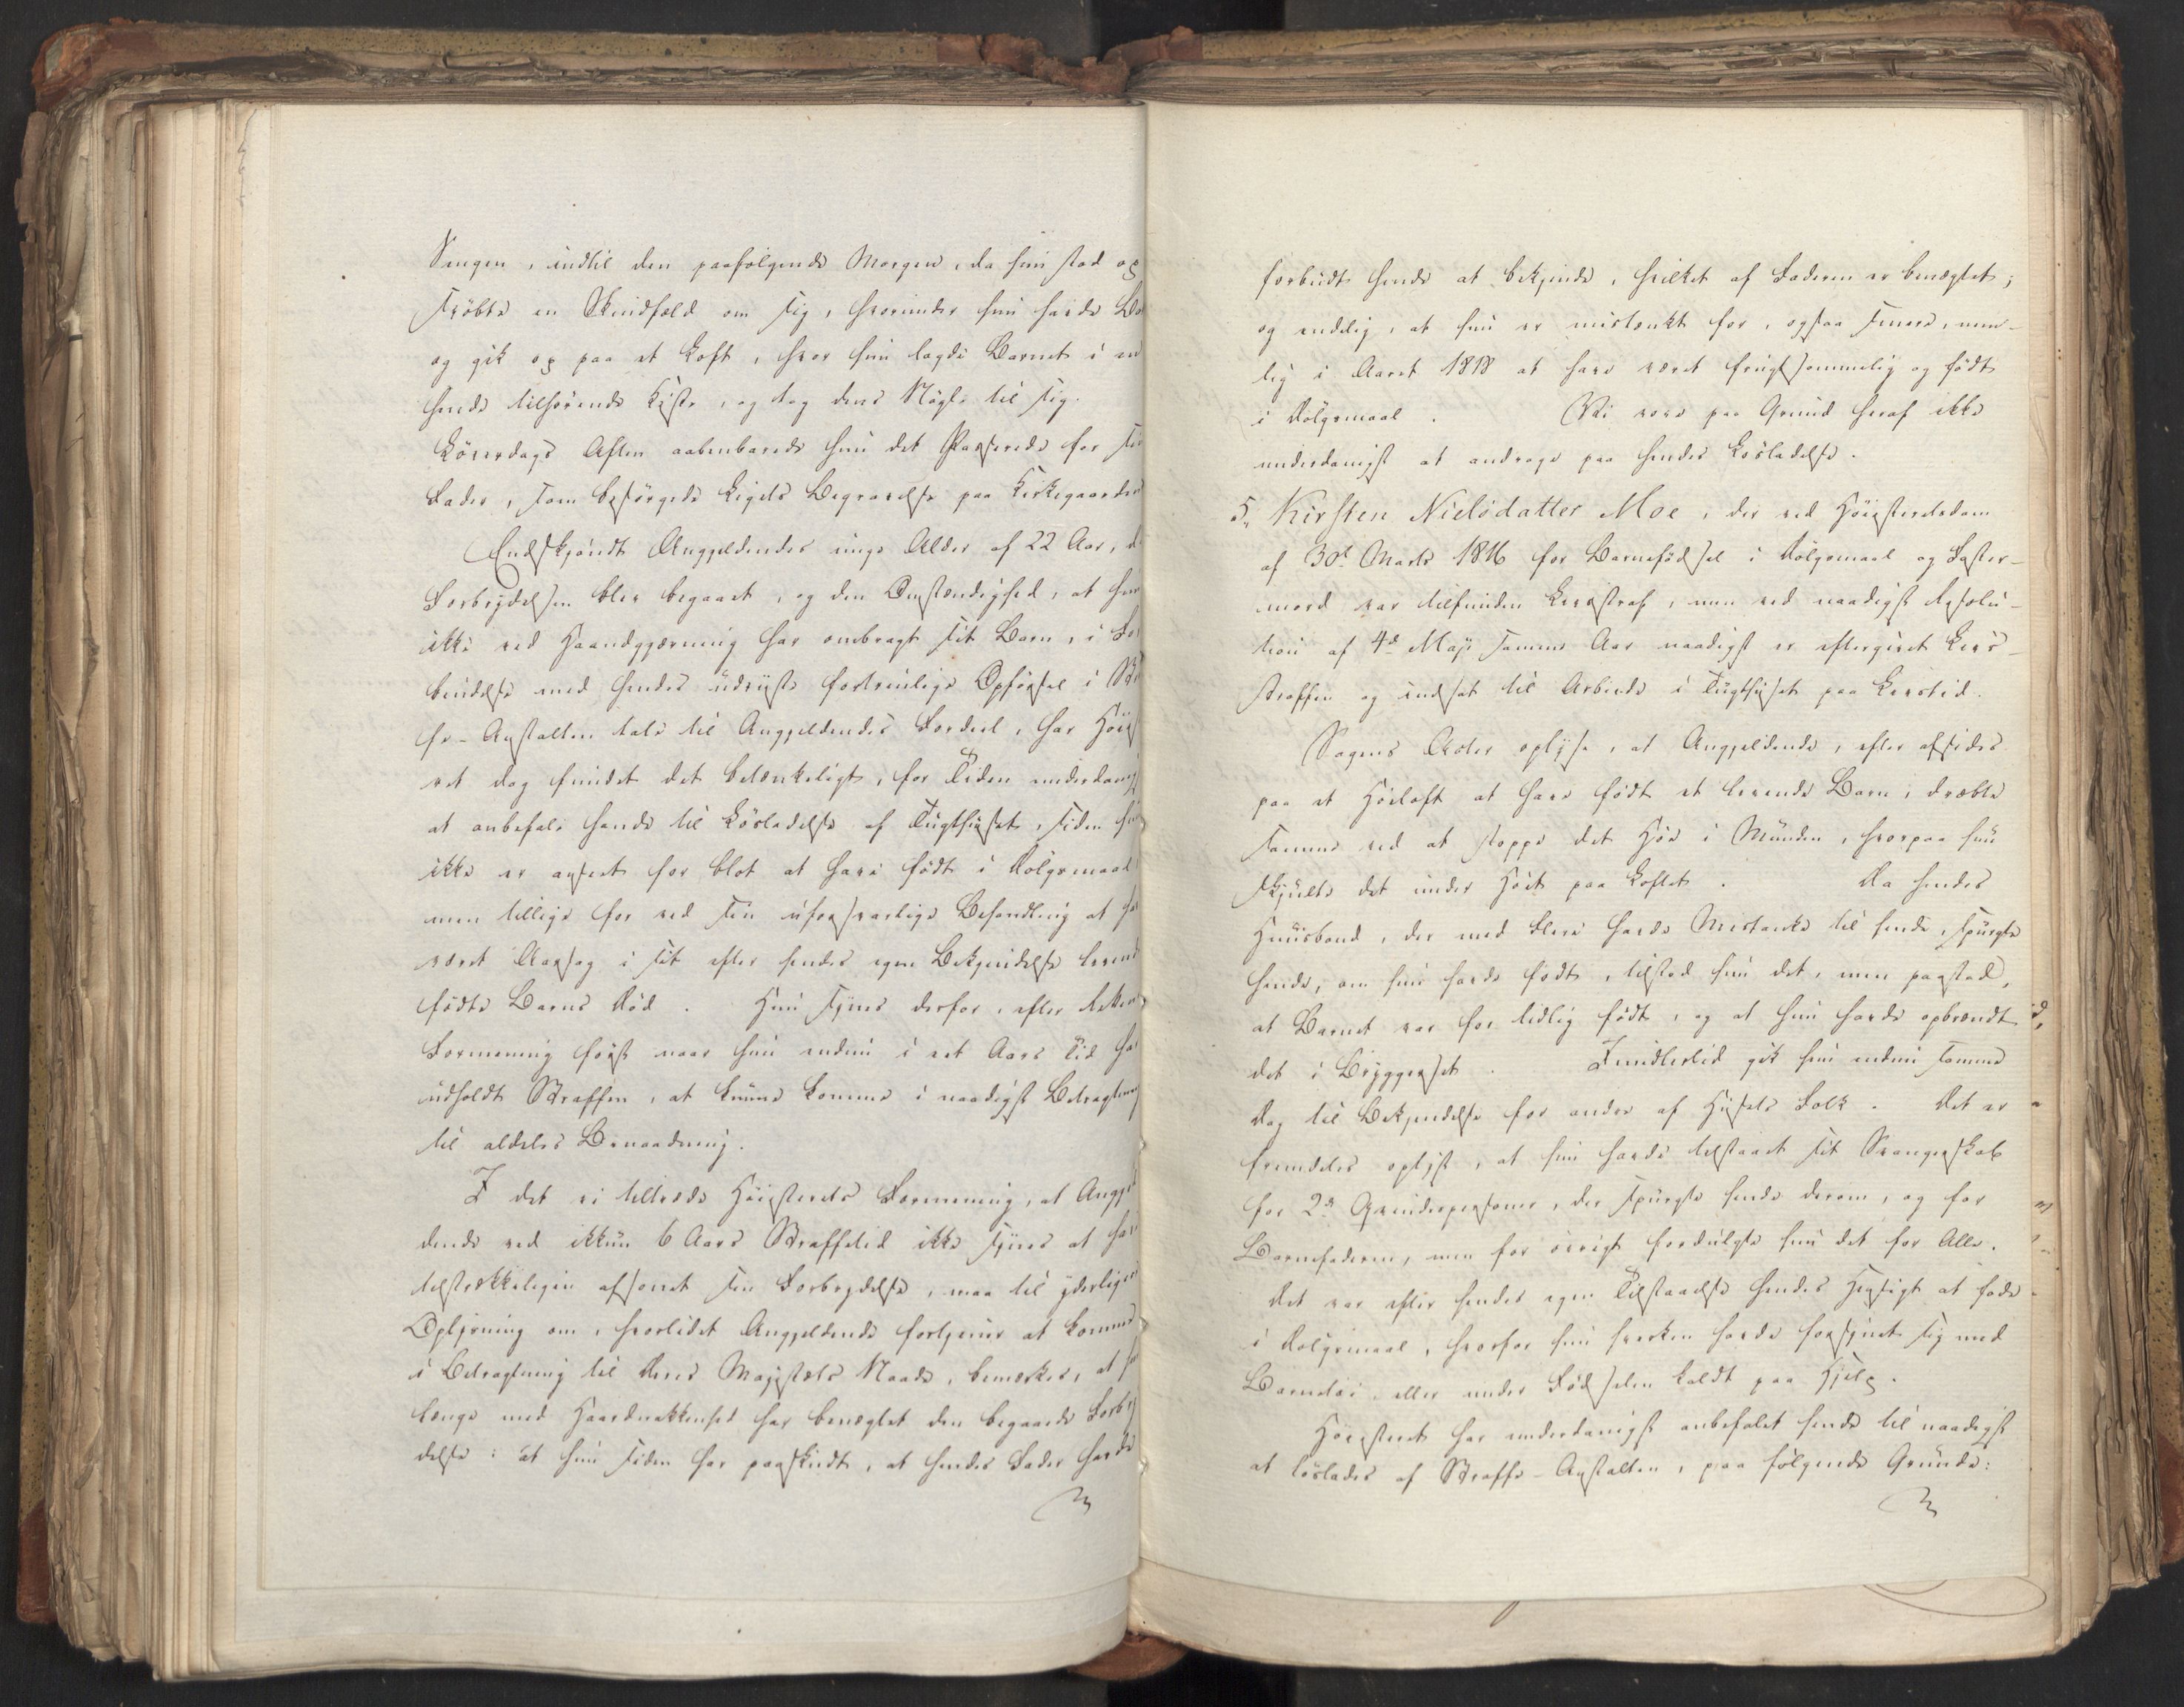 Sengen, indtil den paafølgende Morgen, da hun stod op
svøbte en Skindfæld om sig, hvorunder hun havde Ba
og gik op paa et Loft, hvor hun lagde Barnet i en
hende tilhørende Kiste, og tog dens Nøgle til sig.
Løverdags Aften aabenbarede hun det Passerede for si
Fader, som besørgede Ligets Begravelse paa Kirkegaarden
Endskjøndt Angjeldendes unge Alder af 22 Aar, d
Forbrydelsen blev begaaet, og den Omstændighed, at hun
ikke ved Haandgjerning har ombragt sit Barn, i For
bindelse med hendes udviste fortrinlige Opførsel i Str
fe-Anstalten tale til Angjeldendes Fordeel, har Høies
ret dog fundet det betænkeligt, for Tiden underdanig
at anbefale hende til Løsladelse af Tugthuset, siden hu
ikke er anseet for blot at have født i Dølgsmaal
men tillige for ved sin uforsvarlige Behandling at ha
været Aarsag i sit efter hendes egen Bekjendelse levend
fødte Barns Død. Hun synes derfor, efter Rettens
Formening først naar hun endnu i eet Aars Tid ha
udholdt Straffen, at kunne komme i naadigst Betragtning
til aldeles Benaadning.
I det vi tiltræde Høiesterets Formening, at Angjel
dende ved ikkun 6 Aars Straffetid ikke synes at hav
tilstrækkeligen afsonet sin Forbrydelse, maa til yderlige
Oplysning om, hvorvidt Angjeldende fortjener at komme
i Betragtning til Deres Majestæts Naade, bemærkes, at hu
længe med Haardnakkenhed har benægtet den begaaede Forbry
delse: at hun siden har paaskudt, at hendes Fader havde
forbudt hende at bekjende, hvilket af Faderen er benægtet;
og endelig, at hun er mistænkt for, ogsaa senere, nem-
lig i Aaret 1818 at have været frugtsommelig og født
i Dølgsmaal. Vi vove paa Grund heraf ikke
underdanigst at andrage paa hendes Løsladelse.
5, Kirsten Nielsdatter Moe, der ved Høiesteretsdom
af 30d Marts 1816 for Barnefødsel i Dølgsmaal og Foster-
mord var tilfunden Livsstraf, men ved naadigst Resolu-
tion af 4d Maji samme Aar naadigst er eftergivet Livs-
straffen og indsat til Arbeide i Tugthuset paa Livstid.
Sagens Acter oplyse, at Angjeldende, efter afsides
paa et Høeloft at have født et levende Barn, dræbte
samme ved at stoppe det Høe i Munden, hvorpaa hun
skjulte det under Høet paa Loftet. Da hendes
Huusbond, der med Flere havde Mistanke til hende, spurgte
hende, om hun havde født, tilstod hun det, men paastod,
at Barnet var for tidlig født, og at hun havde opbrændt
det i Bryggerset. Imidlertid gik hun endnu samme
Dag til Bekjendelse for andre af Husets Folk. Det er
fremdeles oplyst, at hun havde tilstaaet sit Svangerskab
for 2de Qvindepersoner, der spurgte hende derom, og for
Barnefaderen, men for øvrigt fordulgte hun det for Alle.
Det var efter hendes egen Tilstaaelse hendes Hensigt at føde
i Dølgsmaal, hvorfor hun hverken havde forsynet sig med
Barnetøi, eller under Fødselen kaldt paa Hjelp.
Høiesteret har underdanigst anbefalet hende til naadigst
at løslades af Straffe-Anstalten, paa følgende Grunde: